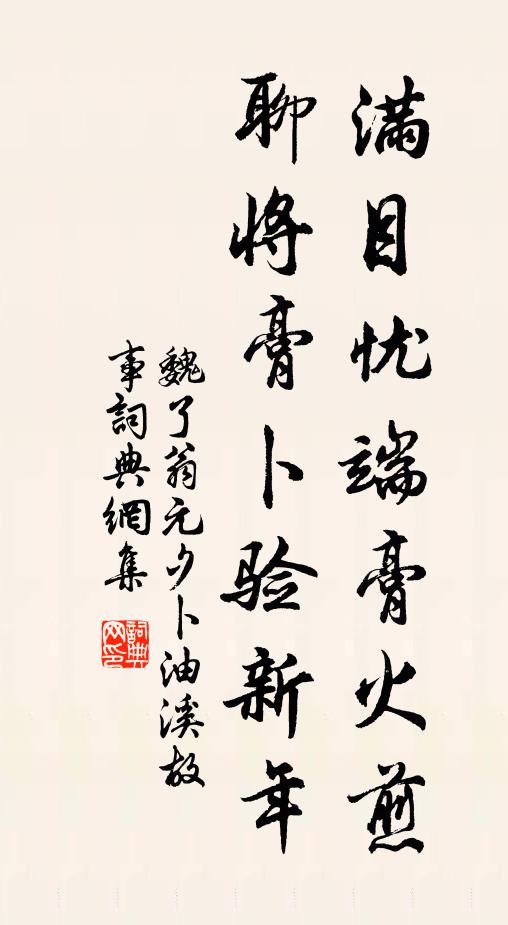 滿目忧端膏火煎
聊將膏卜验新年
魏了翁元夕卜油溪故
事詞典網集
詞典网印